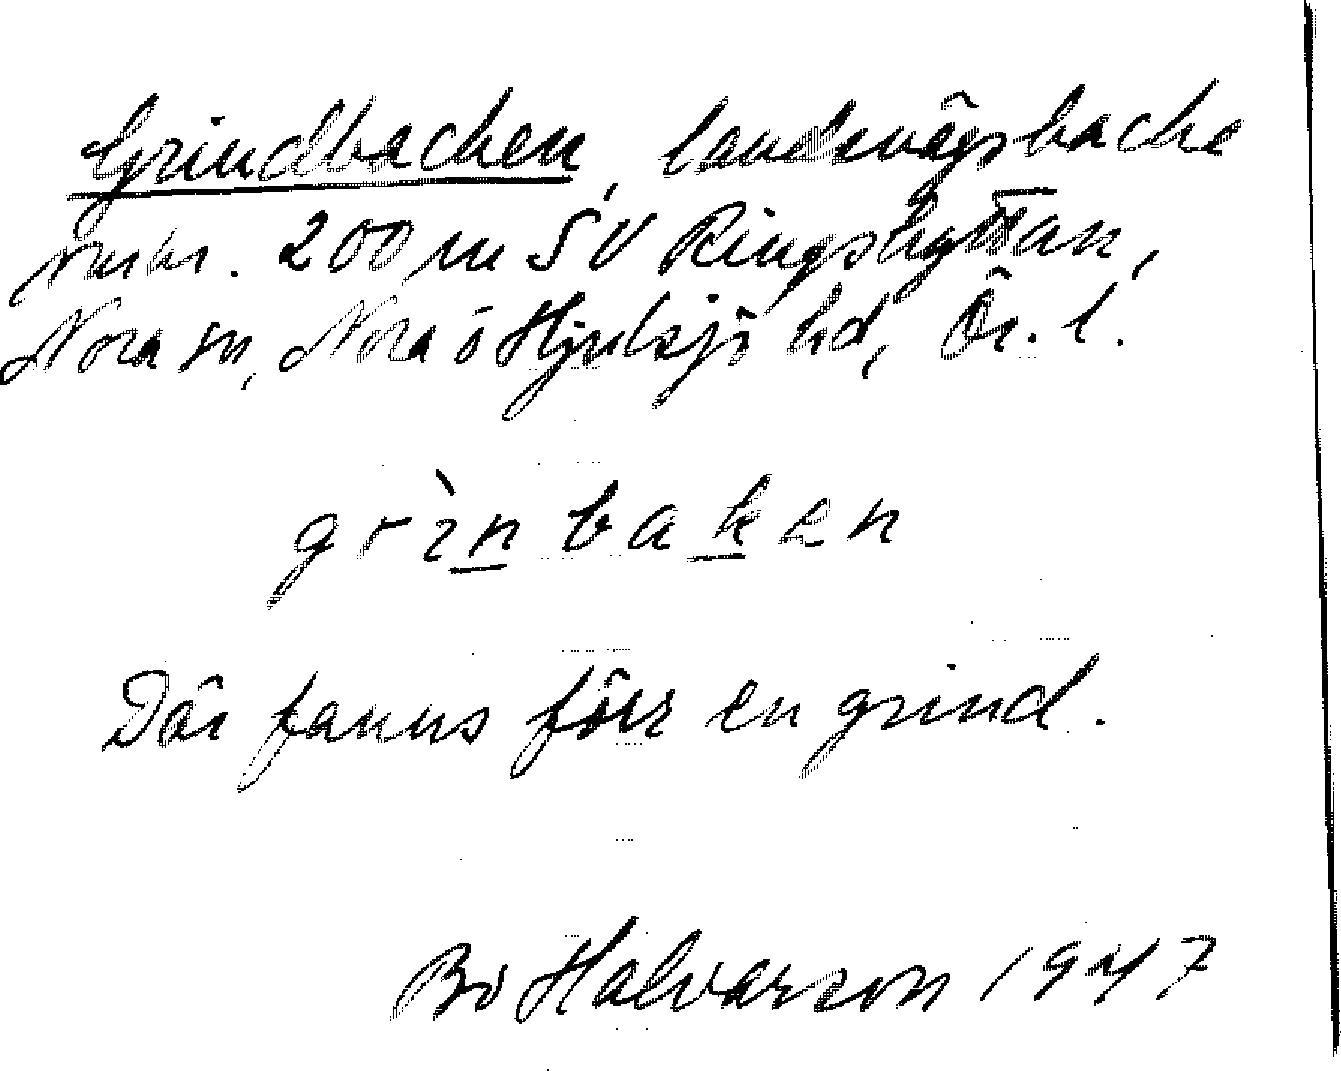 Grindbacken, landsvägsbacke
200 m SV Ringshyttan,
Nora sn, Nora o Hjulsjö hd, Ör. l.
grìn baken
Där fanns förr en grind.
Bo Halvarson 1947